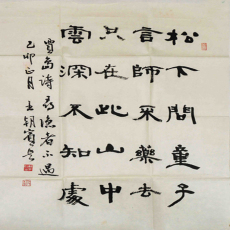 松下問童子
言師采藥去
只在此山中
雲深不知處
賈島詩尋隱者不遇
乙卯正月